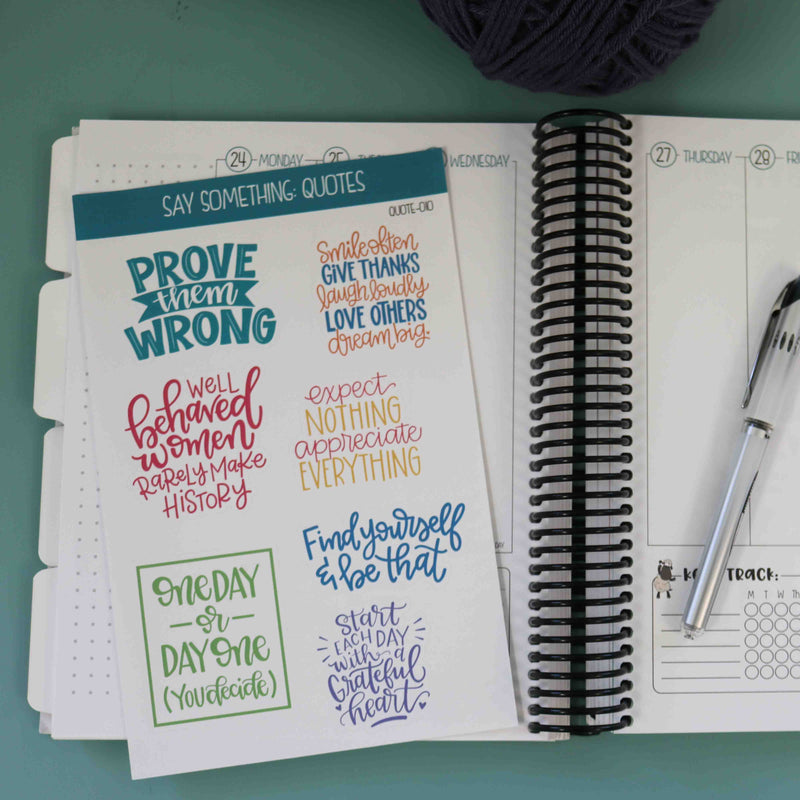 24 MONDAY
25
WEDNESDAY
27 THURSDAY
28
SAY SOMETHING: QUOTES
QUOTE-010
PROVE
them
WRONG
Smile often
GIVE THANKS
laugh loudly
LOVE OTHERS
dream big.
WELL
behaved
women
RARELY MAKE
HISTORY
expect
NOTHING
appreciate
EVERYTHING
Find yourself
& be that
ONE DAY
- or -
DAY ONE
(YOU decide)
Start
EACH DAY
with a
Grateful
heart
TRACK:
M T W TH